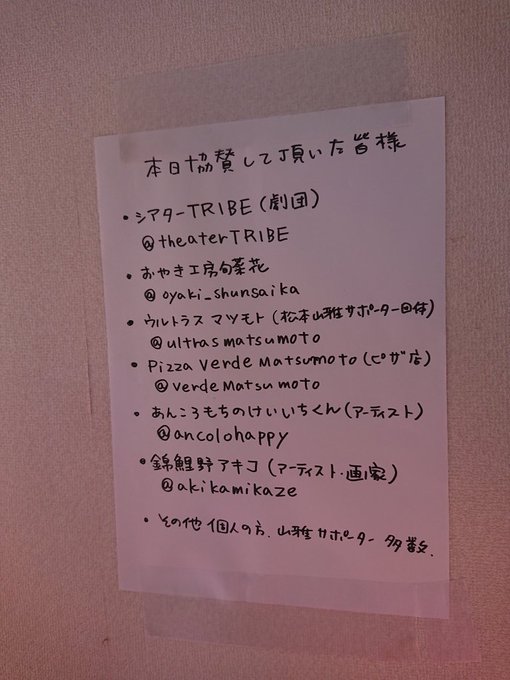 本日協賛して頂いた皆様
・シアターTRIBE(劇団)
@theaterTRIBE
・おやき工房旬菜花
@oyaki_shunsaika
・ウルトラス マツモト(松本山雅サポーター団体)
@ultrasmatsumoto
・Pizza Verde Matsumoto(ピザ店)
@verdeMatsumoto
・あんころもちのけいいちくん(アーティスト)
@ancolohappy
・錦鯉野アキコ(アーティスト・画家)
@akikamikaze
・その他個人の方、山雅サポーター多数.